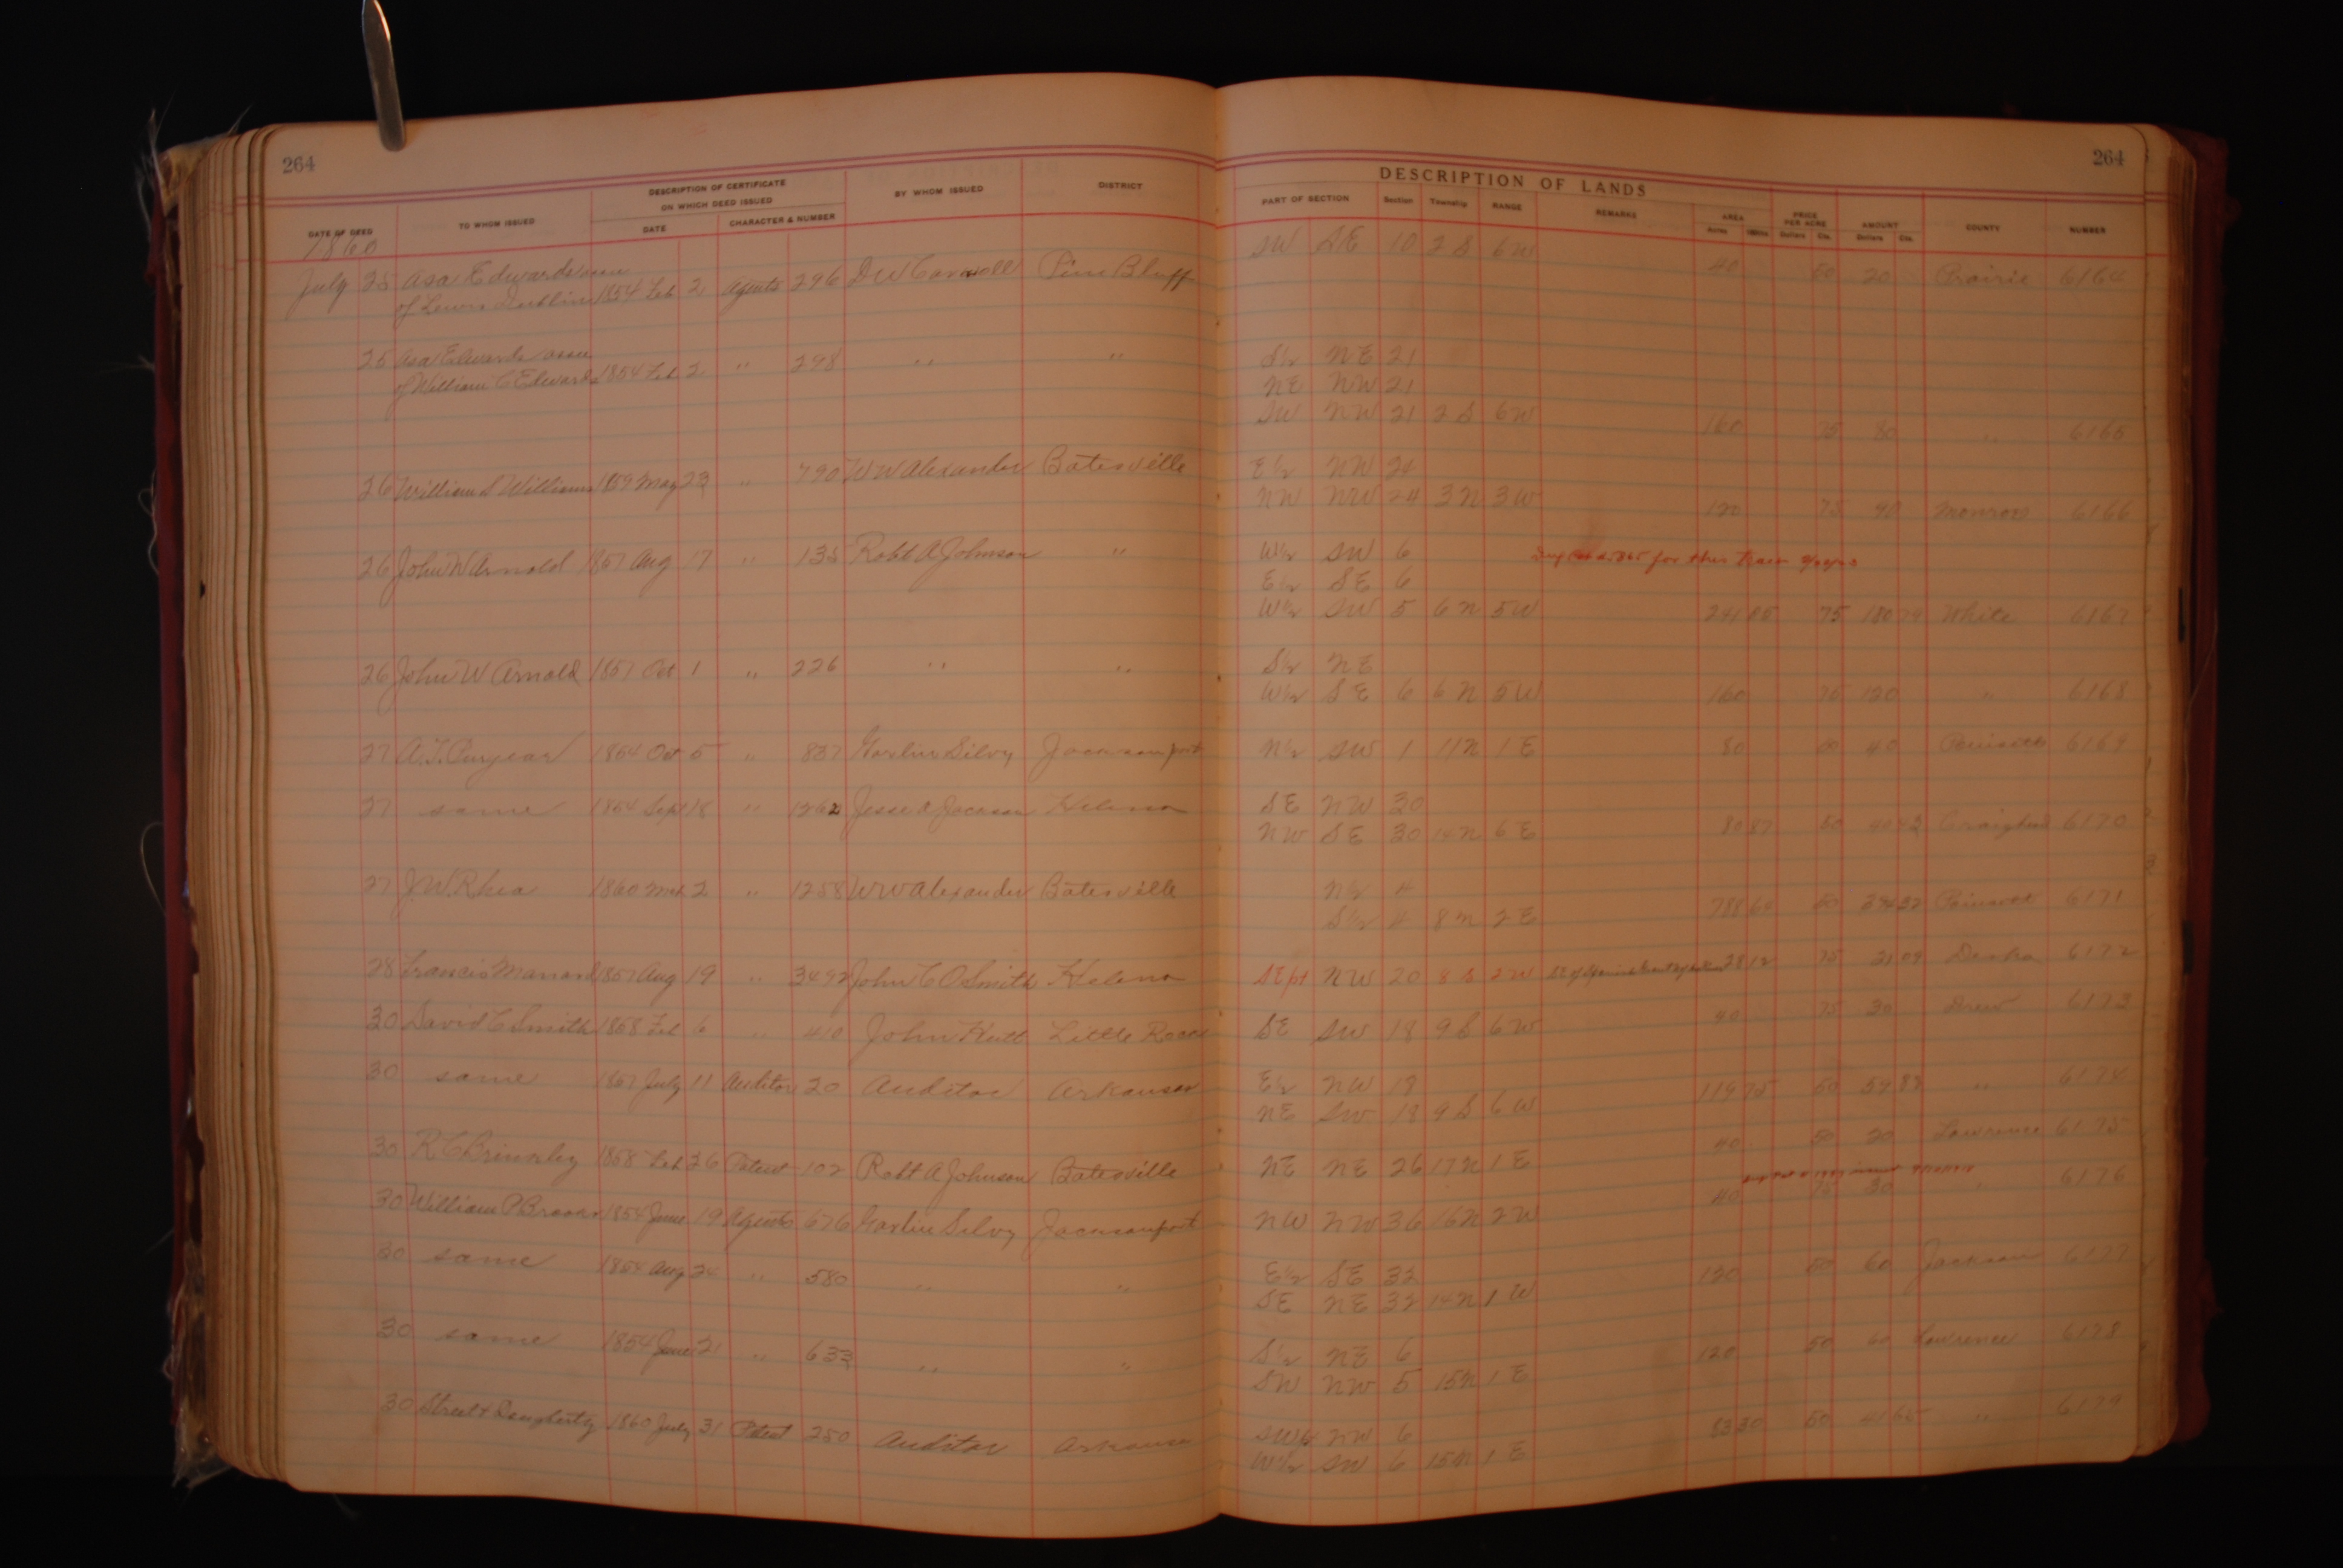 264
264
DESCRIPTION OF LANDS
DATE OF DEED TO WHOM ISSUED DESCRIPTION OF CERTIFICATE ON WHICH DEED ISSUED BY WHOM ISSUED DISTRICT PART OF SECTION Section Township RANGE REMARKS AREA PRICE PER ACRE AMOUNT COUNTY NUMBER
DATE CHARACTER & NUMBER Acres Dollars Cts. Dollars Cts.
1860
July 25 Asa Edwards assn 1854 Feb 2 Agents 296 D W Carroll Pine Bluff SW SE 10 2 S 6 W 40 50 20 Prairie 6164
of Lewis
25 Asa Edwards assn 1854 Feb 2 " 298 " " S½ NE 21
of William C Edwards NE NW 21
SW NW 21 2 S 6 W 160 80 " 6165
26 William S Williams 1859 May 23 " 790 W W Alexander Batesville E½ NW 24
NW NW 24 3 N 3 W 120 75 90 Monroe 6166
26 John W Arnold 1857 Aug 17 " 135 Robt A Johnson " W½ SW 6 for this
E½ SE 6
W½ SW 5 6 N 5 W 241 05 75 180 79 White 6167
26 John W Arnold 1857 Oct 1 " 226 " " S½ NE
W½ SE 6 6 N 5 W 160 75 120 " 6168
27 A. T. Puryear 1854 Oct 5 " 837 Garlin Silvy Jacksonport N½ SW 1 11 N 1 E 80 50 40 Poinsett 6169
27 same 1854 Sept 18 " 1262 Jesse A Jackson Helena SE NW 30
NW SE 30 14 N 6 E 80 87 50 40 43 Craighead 6170
27 J. W. Rhea 1860 Mch 2 " 1258 W W Alexander Batesville N½ 4
S½ 4 8 N 2 E 788 64 50 394 32 Poinsett 6171
28 Francis 1857 Aug 19 " 3492 John C O Smith Helena SE pt NW 20 8 S 2 W 28 12 75 21 09 Desha 6172
30 David C Smith 1858 Feb 6 " 410 John Hutt Little Rock SE SW 18 9 S 6 W 40 75 30 Drew 6173
30 same 1857 July 11 Auditor 20 Auditor Arkansas E½ NW 18
NE SW 18 9 S 6 W 119 75 50 59 87 " 6174
30 R C Brinkley 1858 Feb 26 Patent 102 Robt A Johnson Batesville NE NE 26 17 N 1 E 40 50 20 Lawrence 6175
30 William P Brooks 1854 June 19 Agents 676 Garlin Silvy Jacksonport NW NW 36 16 N 2 W 40 75 30 " 6176
30 same 1854 Aug 24 " 580 " " E½ SE 32
SE NE 32 14 N 1 W 120 50 60 Jackson 6177
30 same 1854 June 21 " 633 " " S½ NE 6
SW NW 5 15 N 1 E 120 50 60 Lawrence 6178
30 Street & Daugherty 1860 July 31 Patent 250 Auditor Arkansas NW 6
W½ SW 6 15 N 1 E 83 30 50 41 65 " 6179